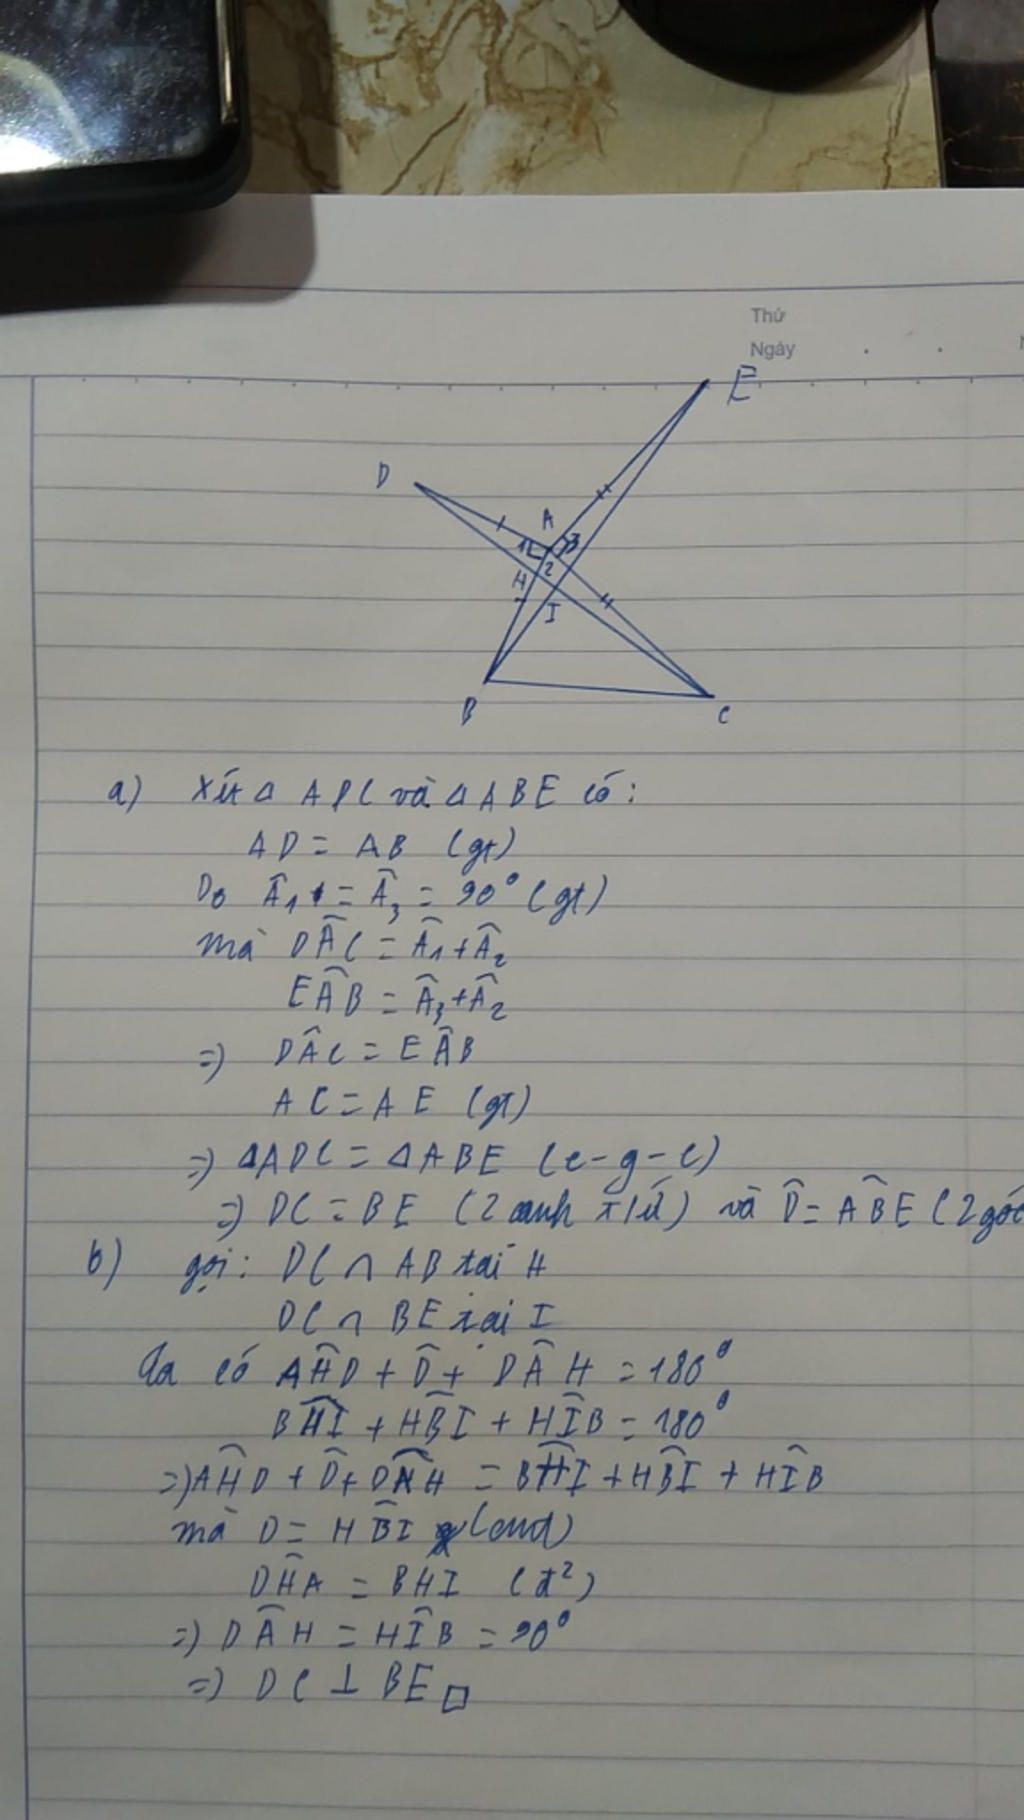 Thứ
Ngày
E
D
A
1
3
2
H
I
B
C
a) Xét Δ ADC và Δ ABE có:
AD = AB (gt)
Do Â₁ = Â₃ = 90° (gt)
mà DÂC = Â₁ + Â₂
EÂB = Â₃ + Â₂
=) DÂC = EÂB
AC = AE (gt)
=) ΔADC = ΔABE (c-g-c)
=) DC = BE (2 cạnh t/ứ) và D̂ = AB̂E (2 góc
b) gọi: DC ∩ AB tại H
DC ∩ BE tại I
Ta có AĤD + D̂ + DÂH = 180°
BĤI + HB̂I + HÎB = 180°
=) AĤD + D̂ + DÂH = BĤI + HB̂I + HÎB
mà D = HB̂I (cmt)
DĤA = BHI (đ²)
=) DÂH = HÎB = 90°
=) DC ⊥ BE □